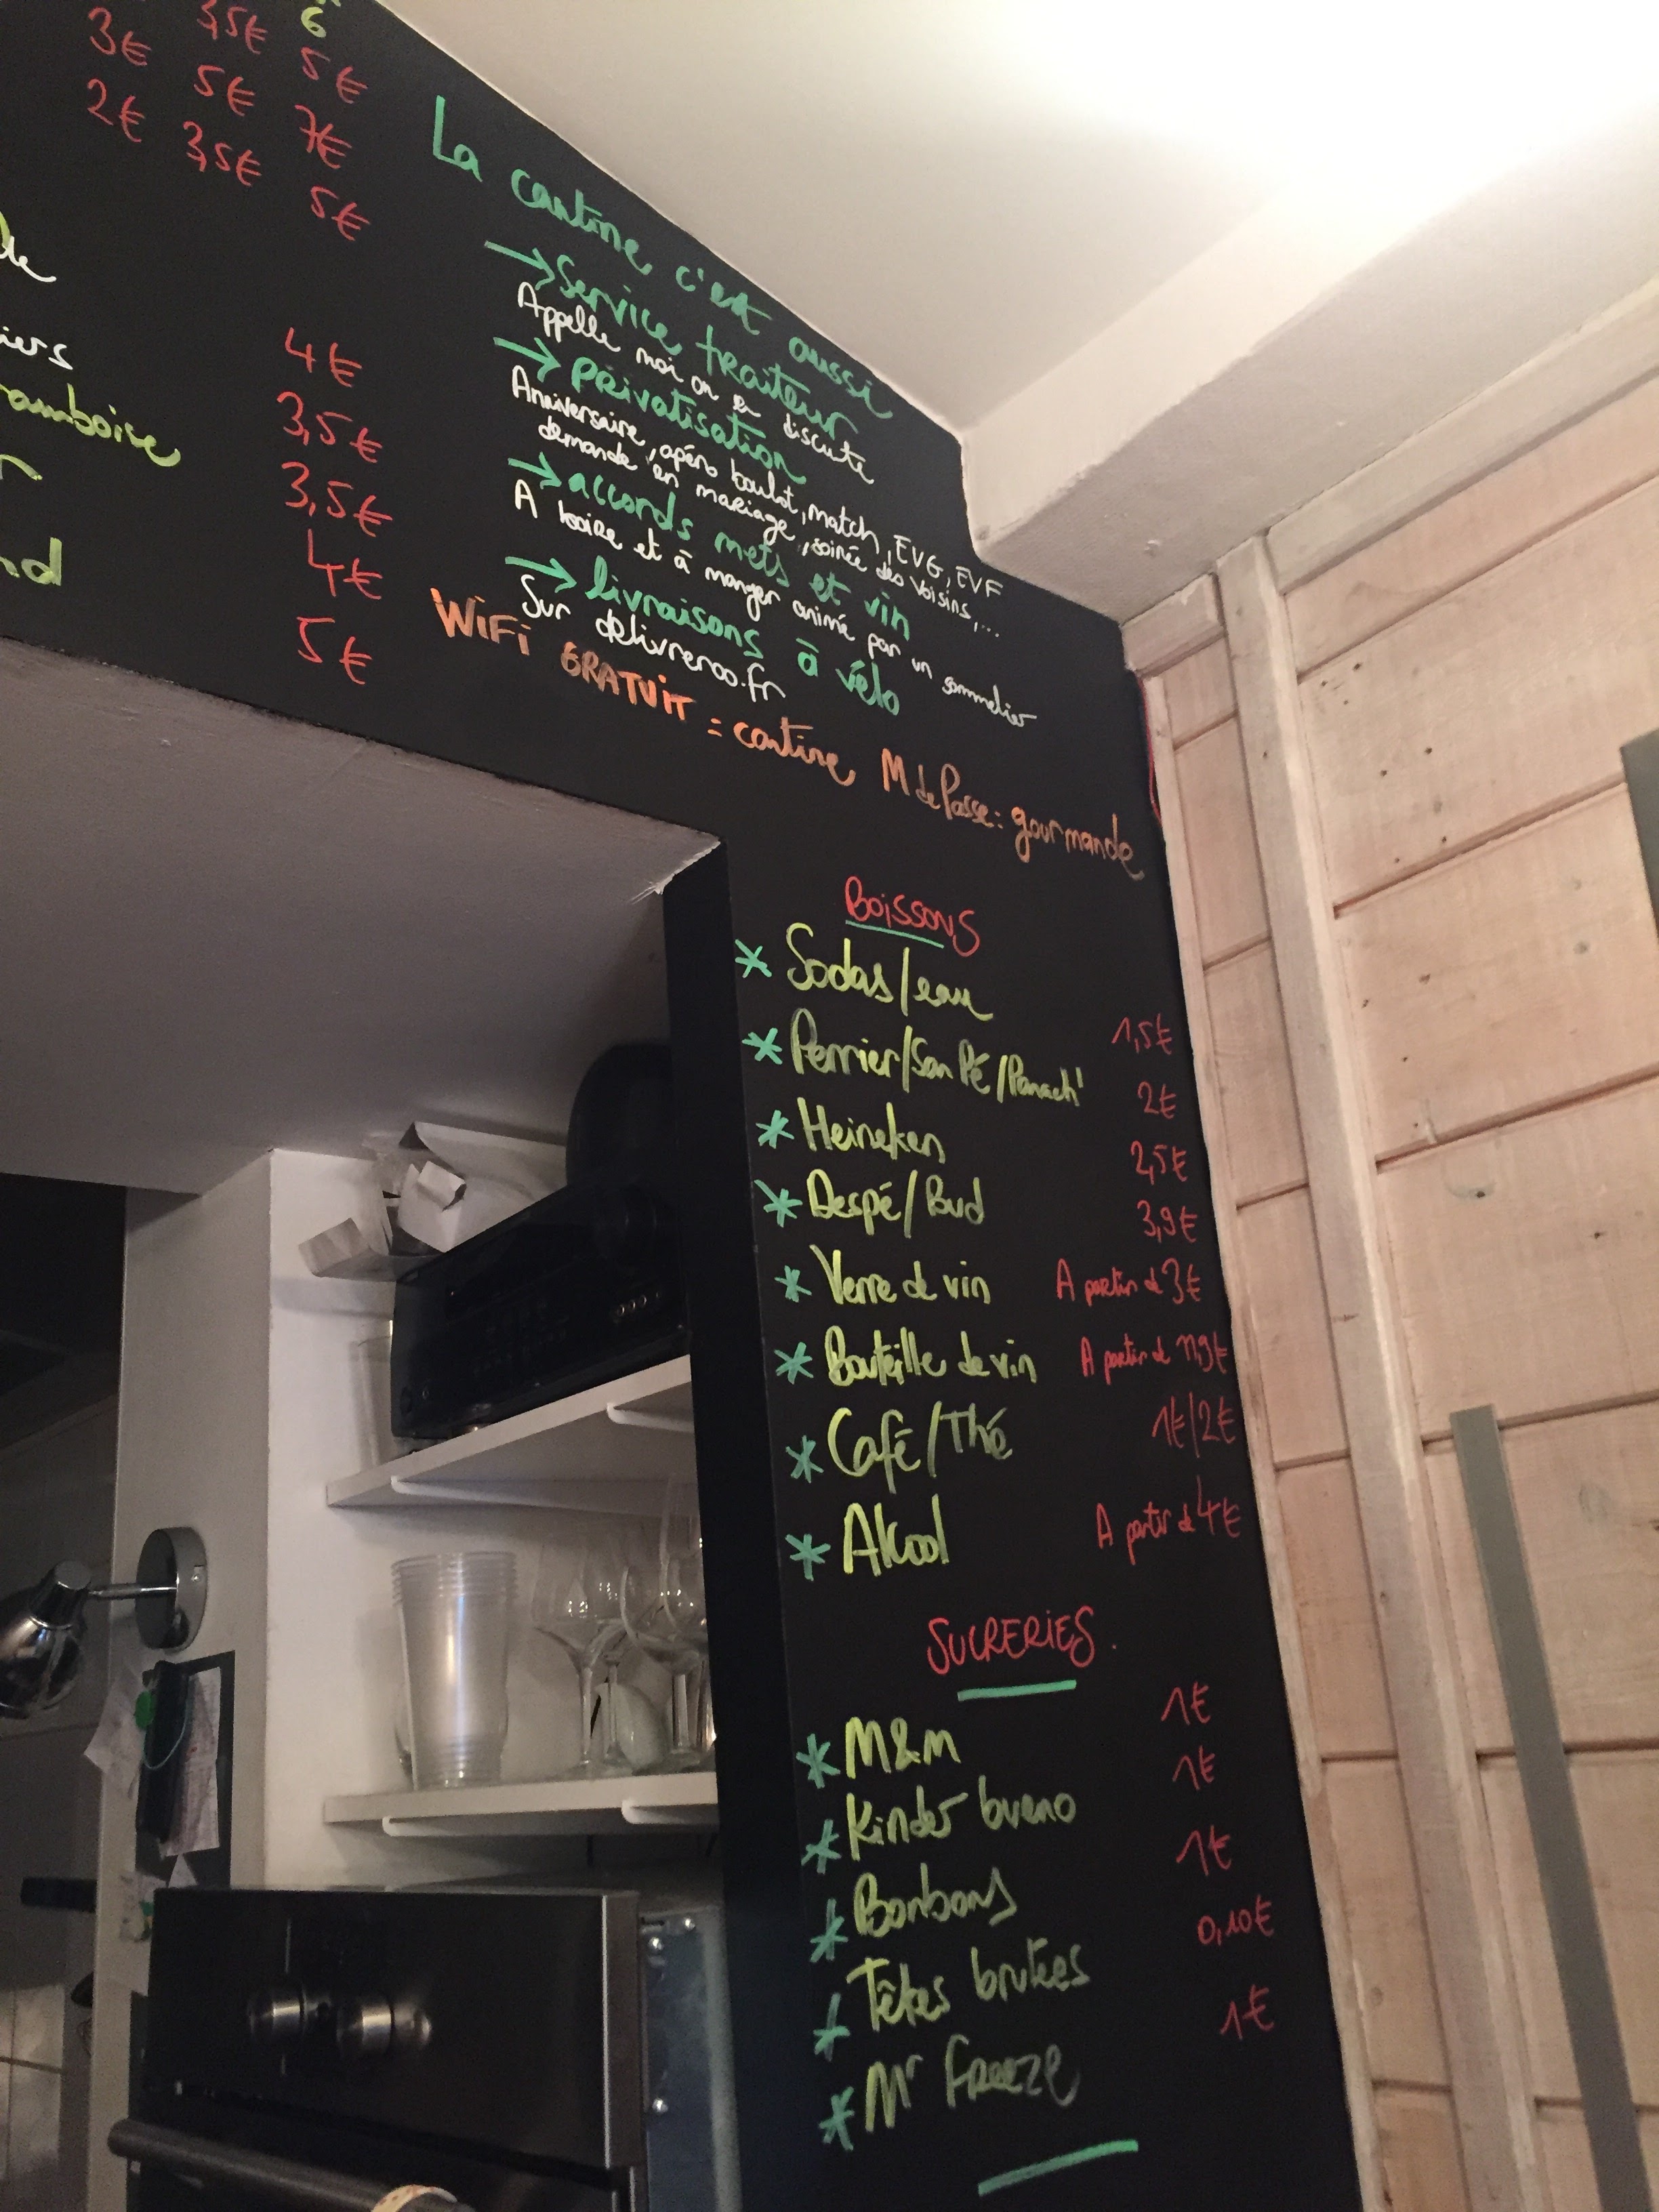 6
3€ 3,5€ 5€
2€ 5€ 7€
3,5€ 5€
4€
iers 3,5€
amboise 3,5€
4€
nd 5€
La cantine c'est aussi
→ Service traiteur
Appelle moi on en discute
→ privatisation
Anniversaire, apéro boulot, match, EVG, EVF
demande en mariage, soirée des voisins,...
→ accords mets et vin
A boire et à manger animé par un sommelier
→ livraisons à vélo
Sur deliveroo.fr
WiFi GRATUIT = cantine M de Passe : gourmande
BOISSONS
* Sodas/eau 1,5€
* Perrier/San Pé/Panach' 2€
* Heineken 2,5€
* Despé/Bud 3,9€
* Verre de vin A partir d 3€
* Bouteille de vin A partir d 11,9€
* Café/Thé 1€/2€
* Alcool A partir d 4€
SUCRERIES.
* M&M 1€
* Kinder bueno 1€
* Bonbons 1€
* Têtes brulées 0,10€
* Mr Freeze 1€